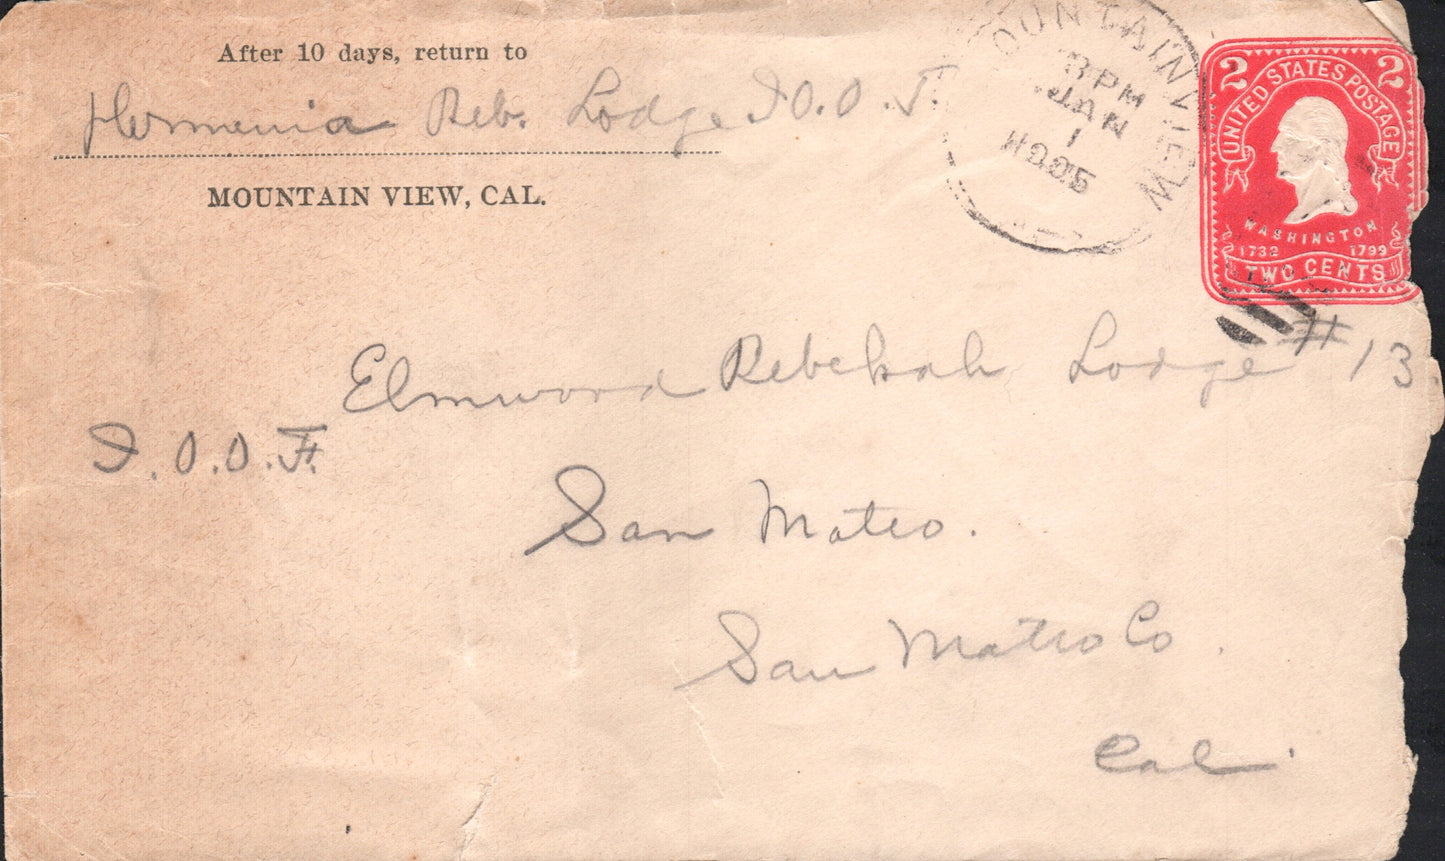 After 10 days, return to
Hermenia Reb. Lodge I.O.O.F.
MOUNTAIN VIEW, CAL.
MOUNTAIN VIEW
3 PM
JAN
1
2
2
UNITED STATES POSTAGE
WASHINGTON
1732 1799
TWO CENTS
Elmwood Rebekah Lodge # 13.
I.O.O.F.
San Mateo.
San Mateo Co.
Cal.